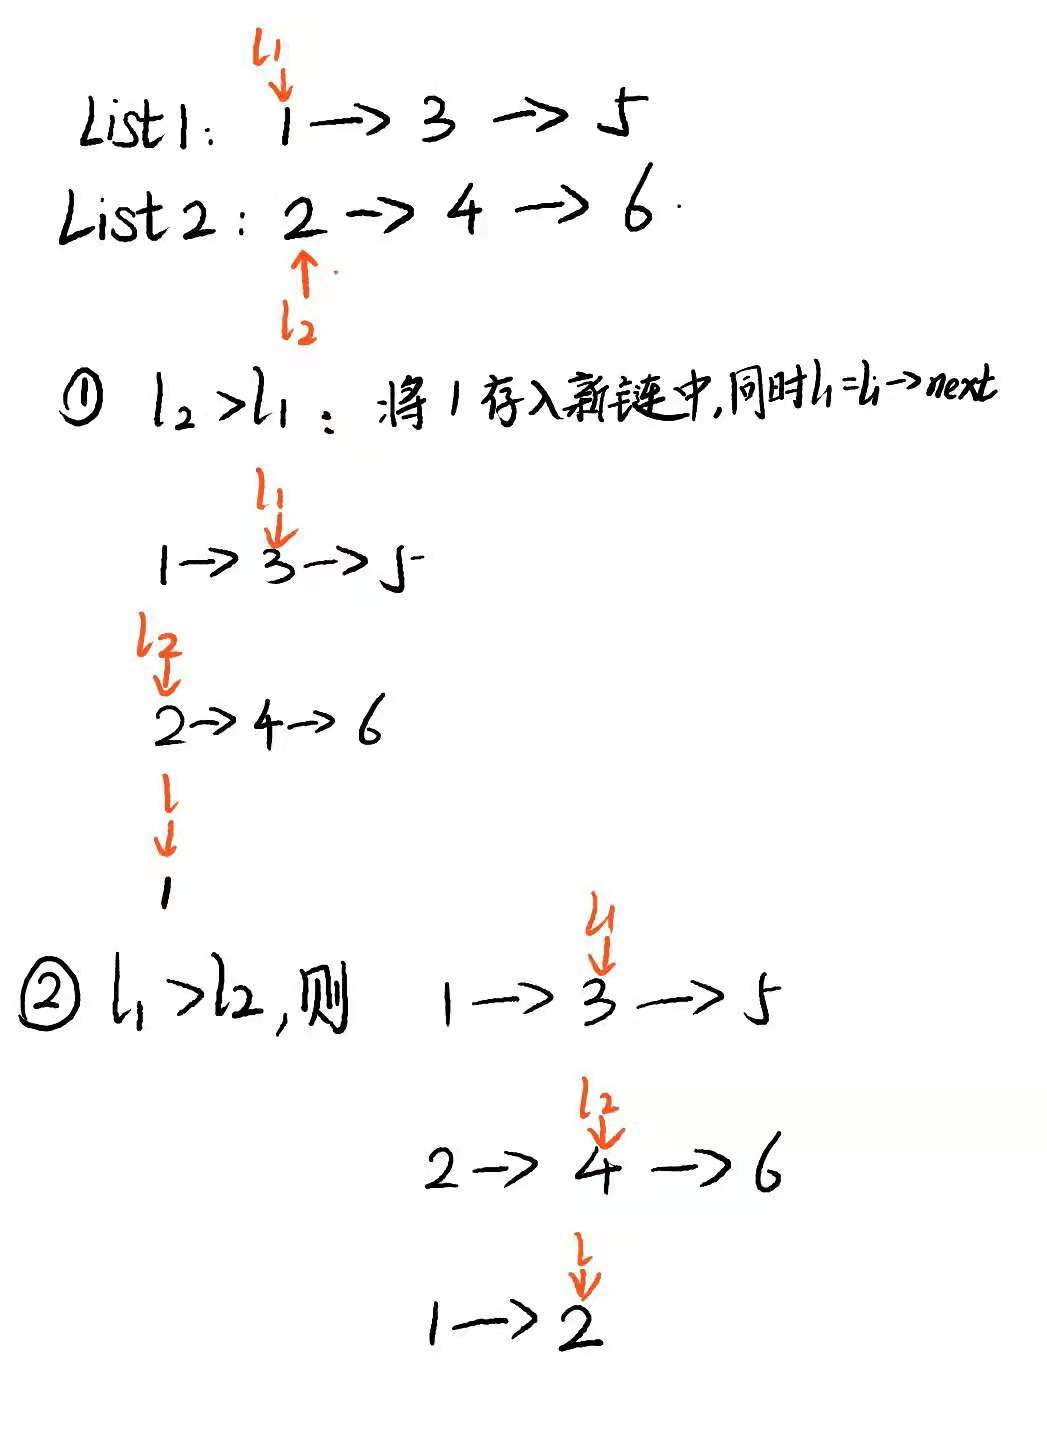 l1
↓
List1: 1 → 3 → 5
List2: 2 → 4 → 6
↑
l2
① l2 > l1: 将1存入新链中,同时l1=l1→next
l1
↓
1 → 3 → 5
l2
↓
2 → 4 → 6
l
↓
1
② l1 > l2,则
l1
↓
1 → 3 → 5
l2
↓
2 → 4 → 6
l
↓
1 → 2